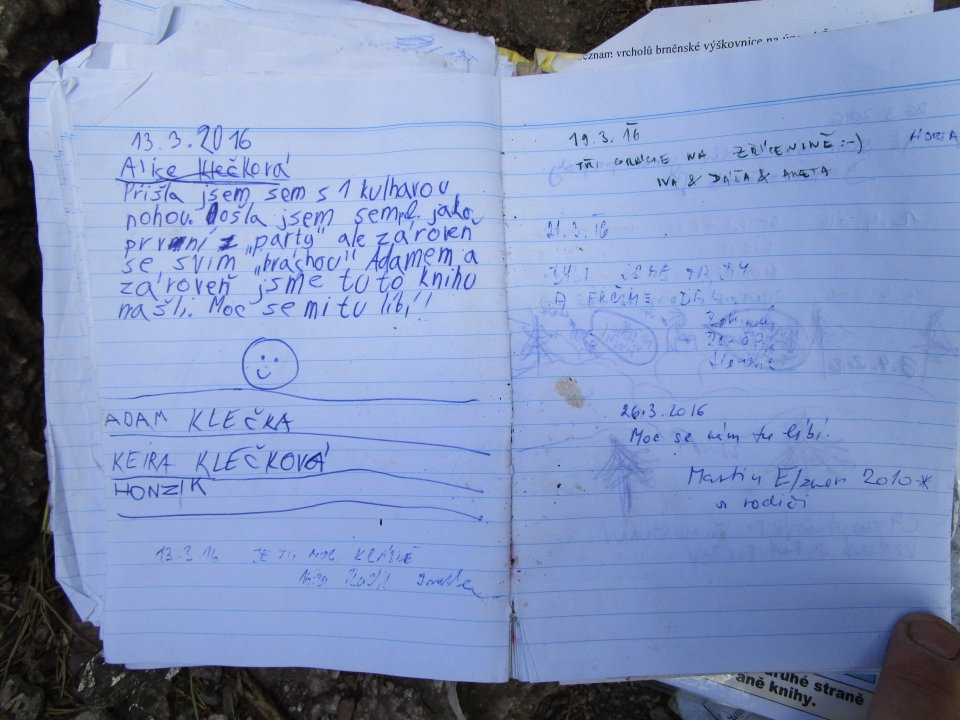 13.3.2016
Alice Klečková
Přišla jsem sem s 1 kulhavou
nohou. Došla jsem sem jako
první z „party" ale zároveň
se svím „bráchou" Adamem a
zároveň jsme tuto knihu
našli. Moc se mi tu líbí!
ADAM KLEČKA
KEIRA KLEČKOVÁ
HONZÍK
13.3.16 JE TU MOC KRÁSNĚ
seznam vrcholů brněnské výškovnice na
19.3.16
TŘI GRÁCIE NA ZŘÍCENINĚ :-)
IVA & DÁŠA & ANETA
21.3.16
JSME
A FRČÍME DÁL
26.3.2016
Moc se nám tu líbí.
Martin Elzner 2010*
s rodiči
druhé straně
knihy.